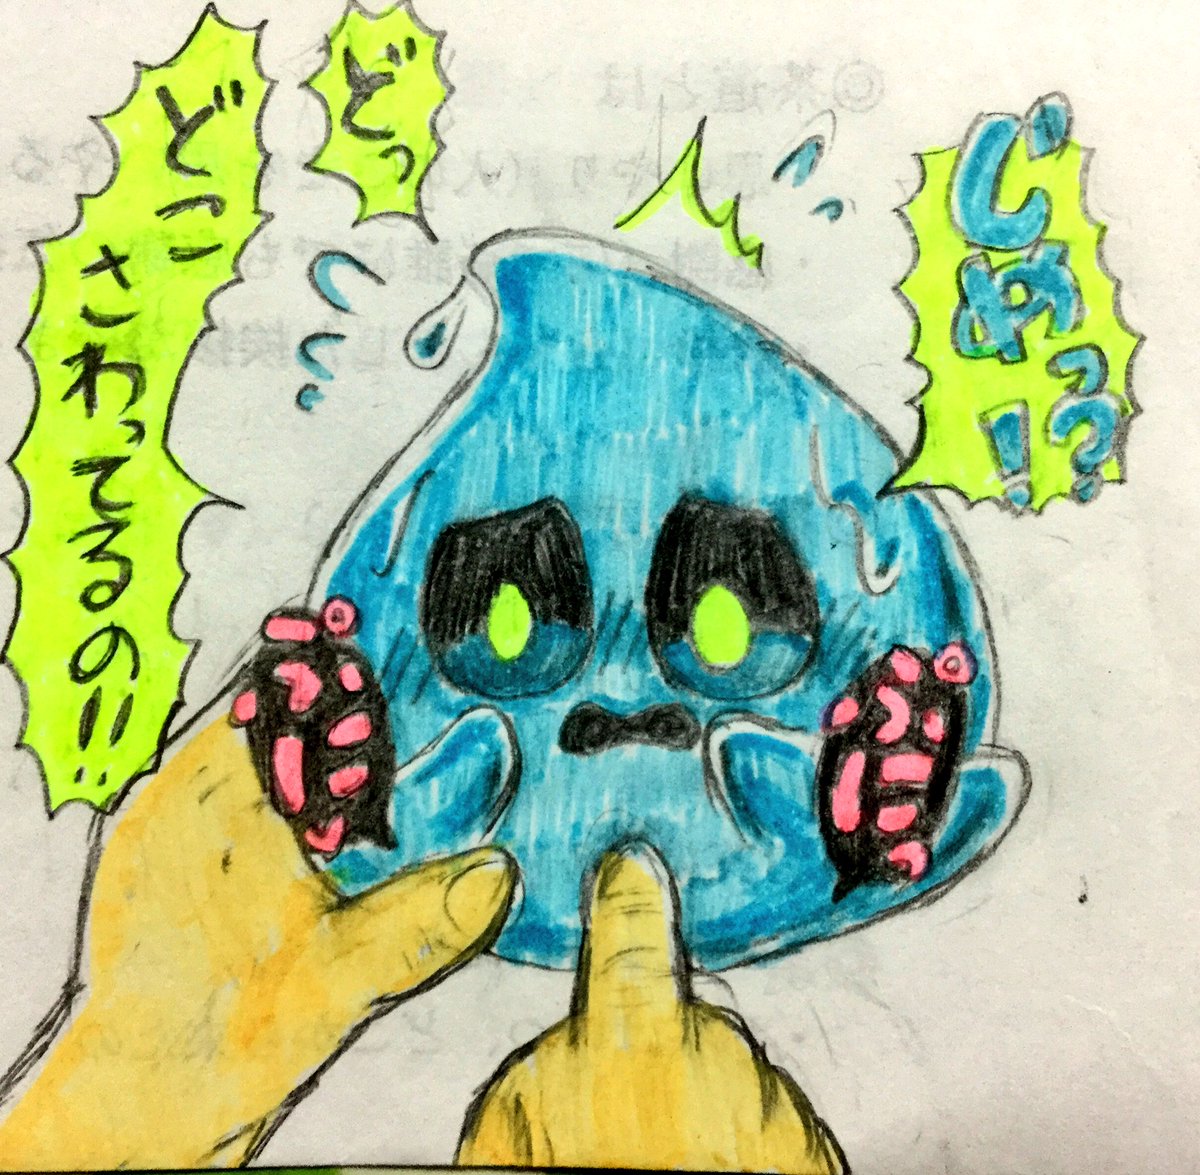 じめっ!?
どっ
どこさわってるの!!
ぷに
ぷに